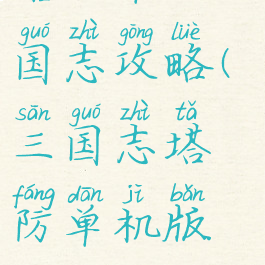 guó zhì gōng lüè
国志攻略(
sān guó zhì tǎ
三国志塔
fáng dān jī bǎn
防单机版